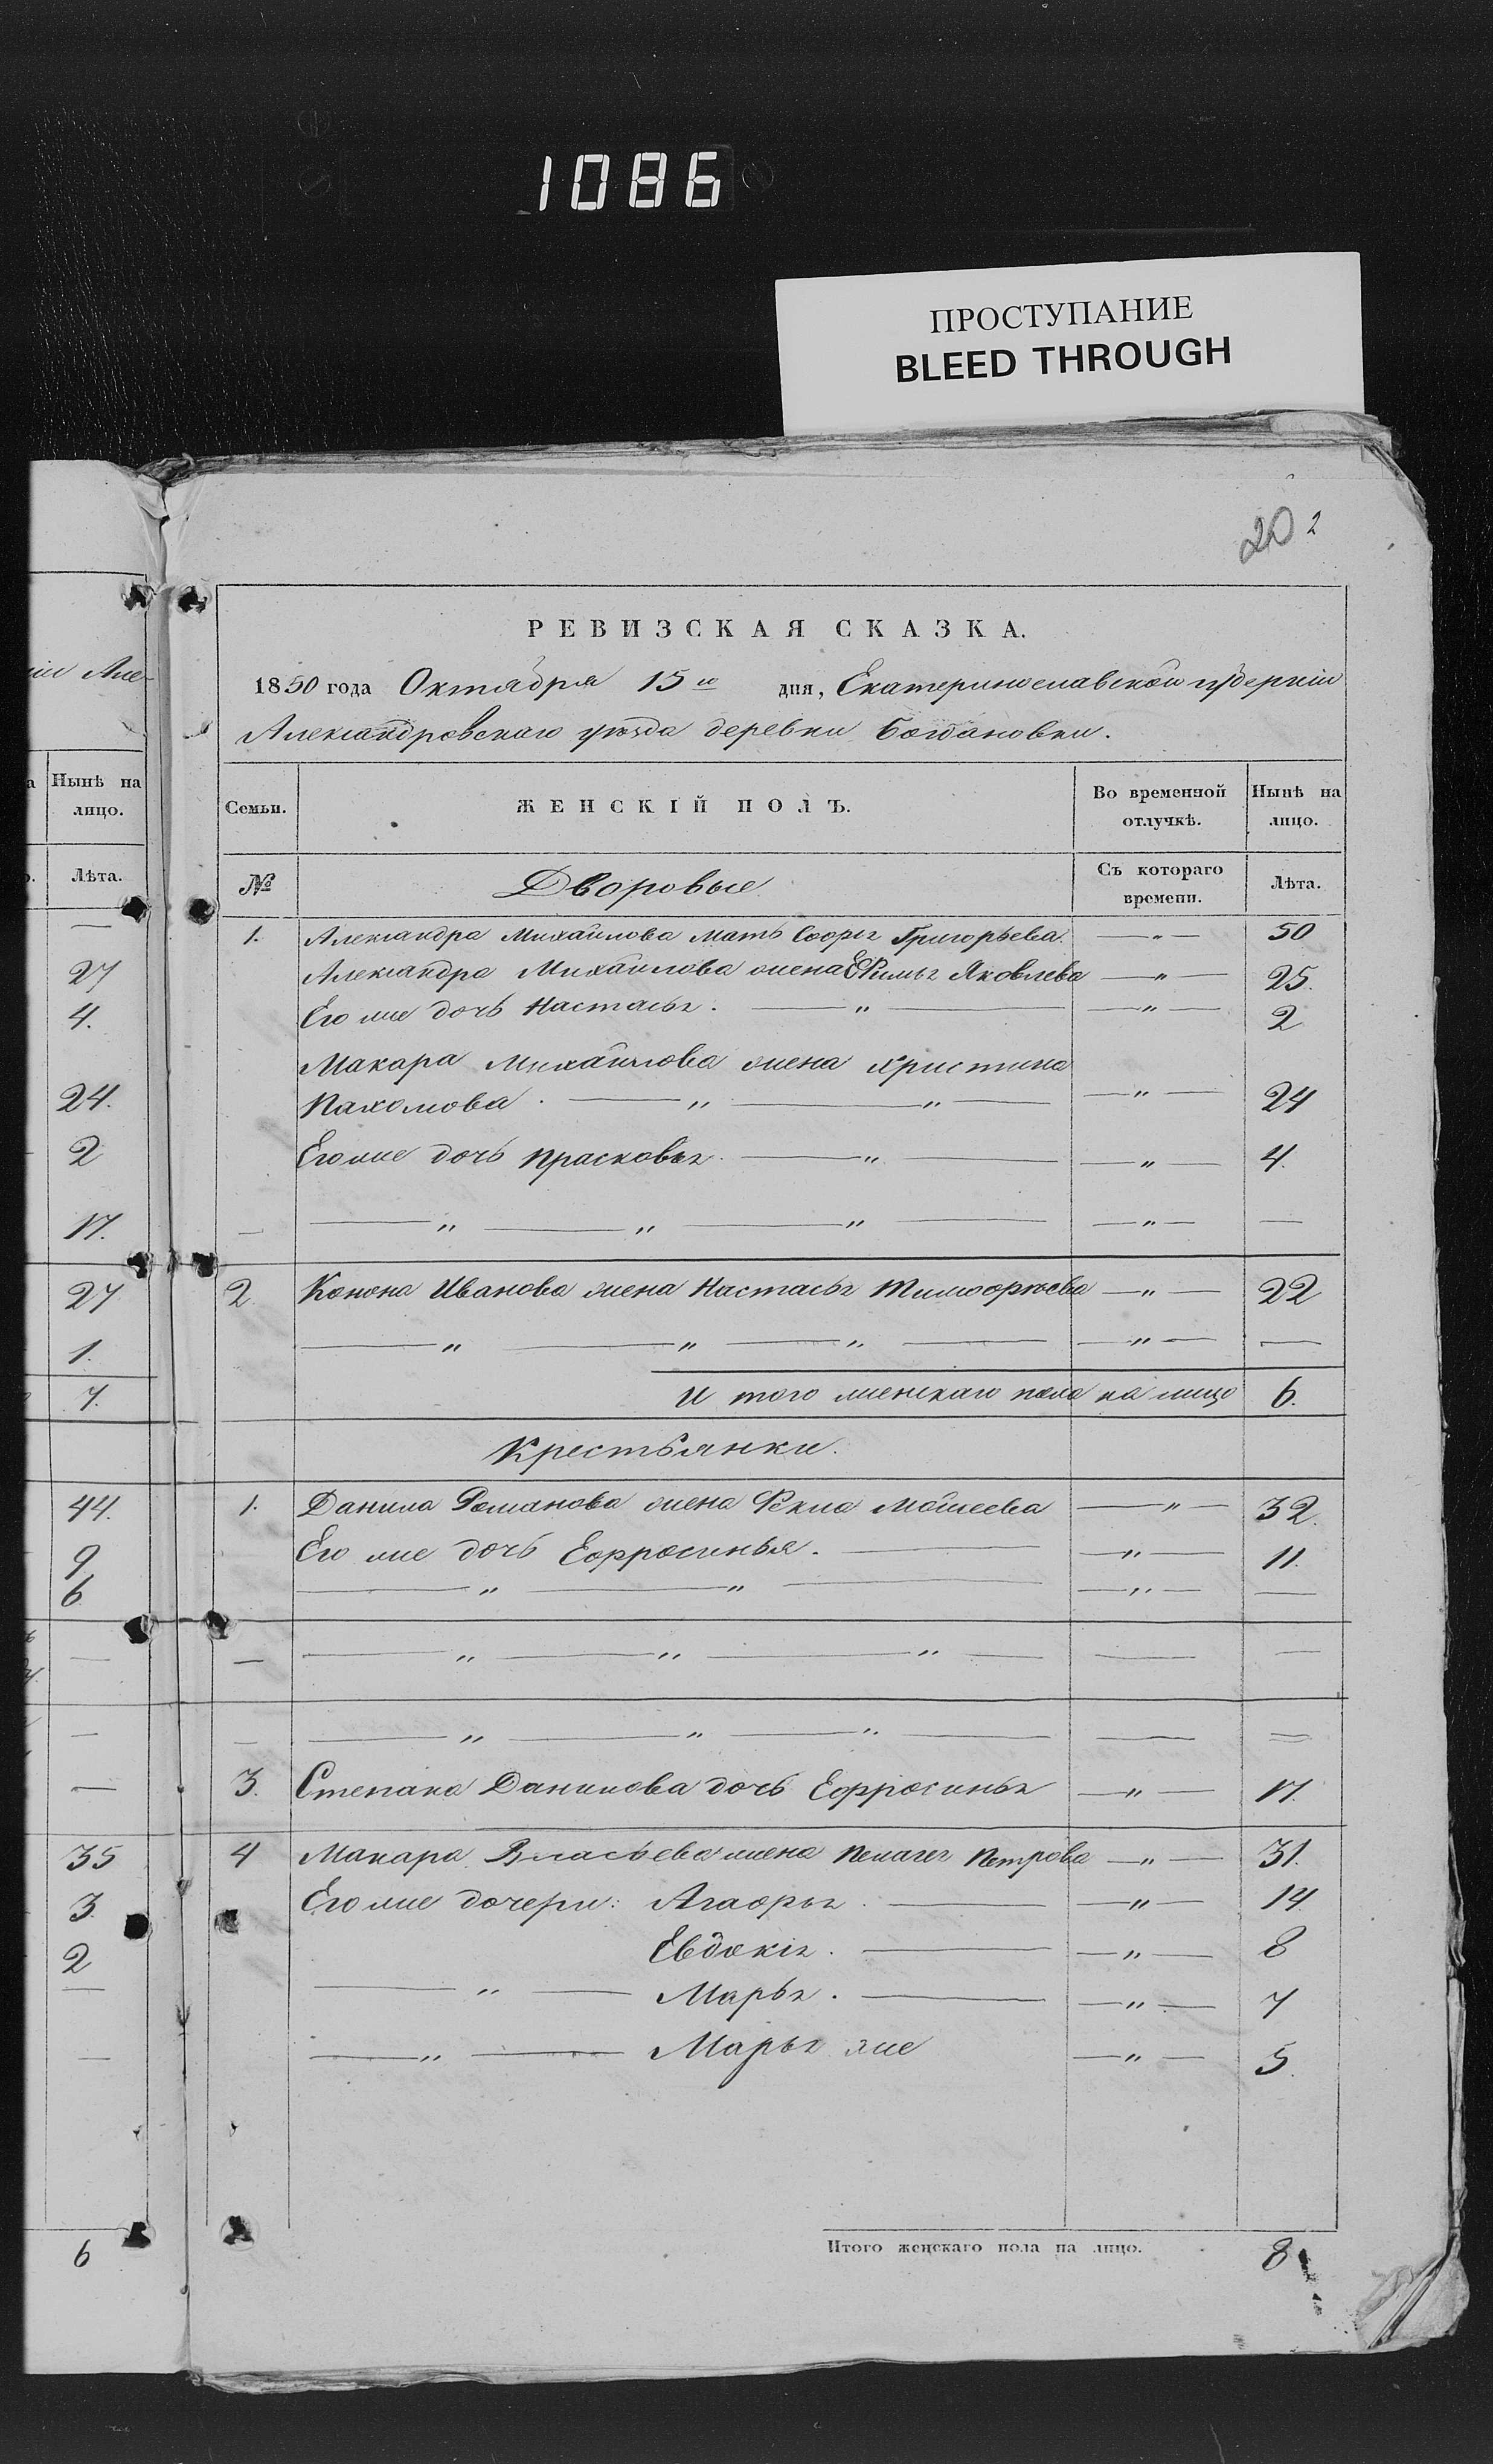 1086
ПРОСТУПАНИЕ
BLEED THROUGH
20 2
РЕВИЗСКАЯ СКАЗКА.
1850 года Октября 15го дня, Екатеринославской губерніи
Александровскаго уѣзда деревни Богдановки.
іи Але-
Нынѣ на
лицо.
Лѣта.
—
27
4.
24.
2
17.
27
1.
7.
44.
9
6
—
—
—
35
3
2
—
—
6
Семьи. ЖЕНСКІЙ ПОЛЪ. Во временной отлучкѣ. Нынѣ на лицо.
№ Дворовые Съ котораго времени. Лѣта.
1. Александра Михайлова мать Софья Григорьева. — " — 50
Александра Михайлова жена Яковлева — " — 25.
Его же дочь Настасья. — " — — " — 2
Макара Михайлова жена Христина
Пахомова. — " — " — — " — 24
Его же дочь Прасковья. — " — — " — 4.
— — " — " — " — — " — —
2. Конона Иванова жена Настасья Тимофѣева — " — 22
— " — " — " — — " — —
И того женскаго пола на лицо 6.
Крестьянки.
1. Данила Романова жена Фекла Моисеева — " — 32.
Его же дочь Ефросинья. — — " — 11.
— " — " — — " — —
— — " — " — " — — —
— — " — " — " — — —
3. Степана Данилова дочь Ефросинья — " — 17.
4 Макара Власьева жена Пелагея Петрова — " — 31.
Его же дочери: Агафья. — — " — 14.
Евдокія. — — " — 8
— " — Марья. — — " — 7
— " — Марья же — " — 5.
Итого женскаго пола на лицо. 8